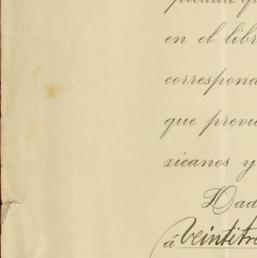 en el libr
correspond
que previ
xicanos y
Dad
á veintitre